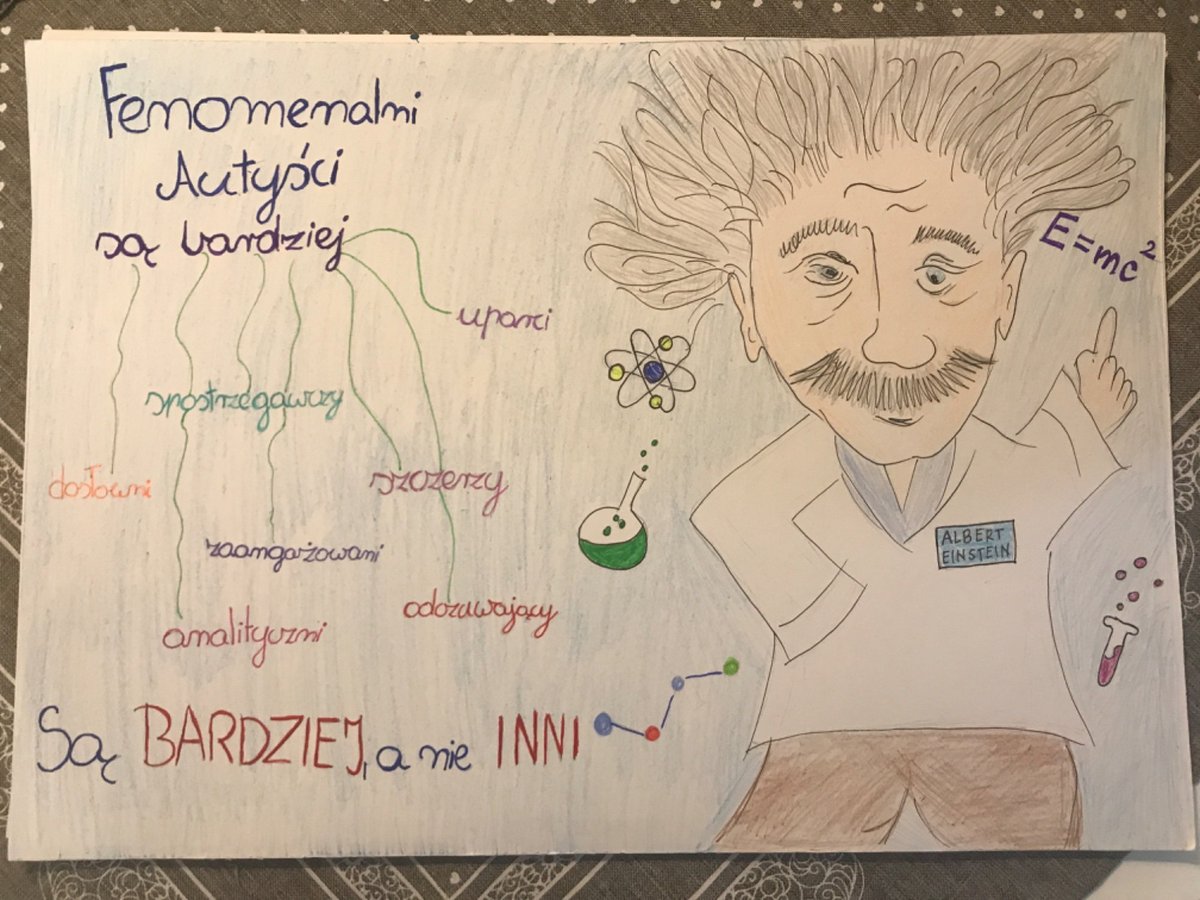 Fenomenalni
Autyści
są bardziej
uparci
spostrzegawczy
dosłowni
szczerzy
zaangażowani
analityczni
odczuwający
Są BARDZIEJ, a nie INNI
E=mc²
ALBERT
EINSTEIN